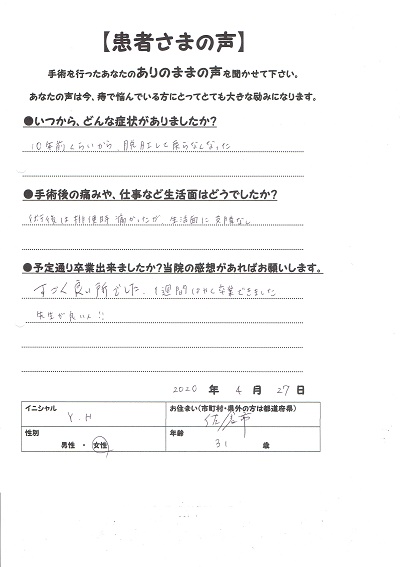 【患者さまの声】
手術を行ったあなたのありのままの声を聞かせて下さい。
あなたの声は今、痔で悩んでいる方にとってとても大きな励みになります。
●いつから、どんな症状がありましたか?
10年前くらいから、脱肛して戻らなくなった
●手術後の痛みや、仕事など生活面はどうでしたか?
術後は排便時痛かったが、生活面に支障なし
●予定通り卒業出来ましたか?当院の感想があればお願いします。
すごく良い所でした。1週間はやく卒業できました
先生が良い人!!
2020 年 4 月 27 日
イニシャル お住まい(市町村・県外の方は都道府県)
Y.H 市
性別 年齢
男性 ・ 女性 31 歳